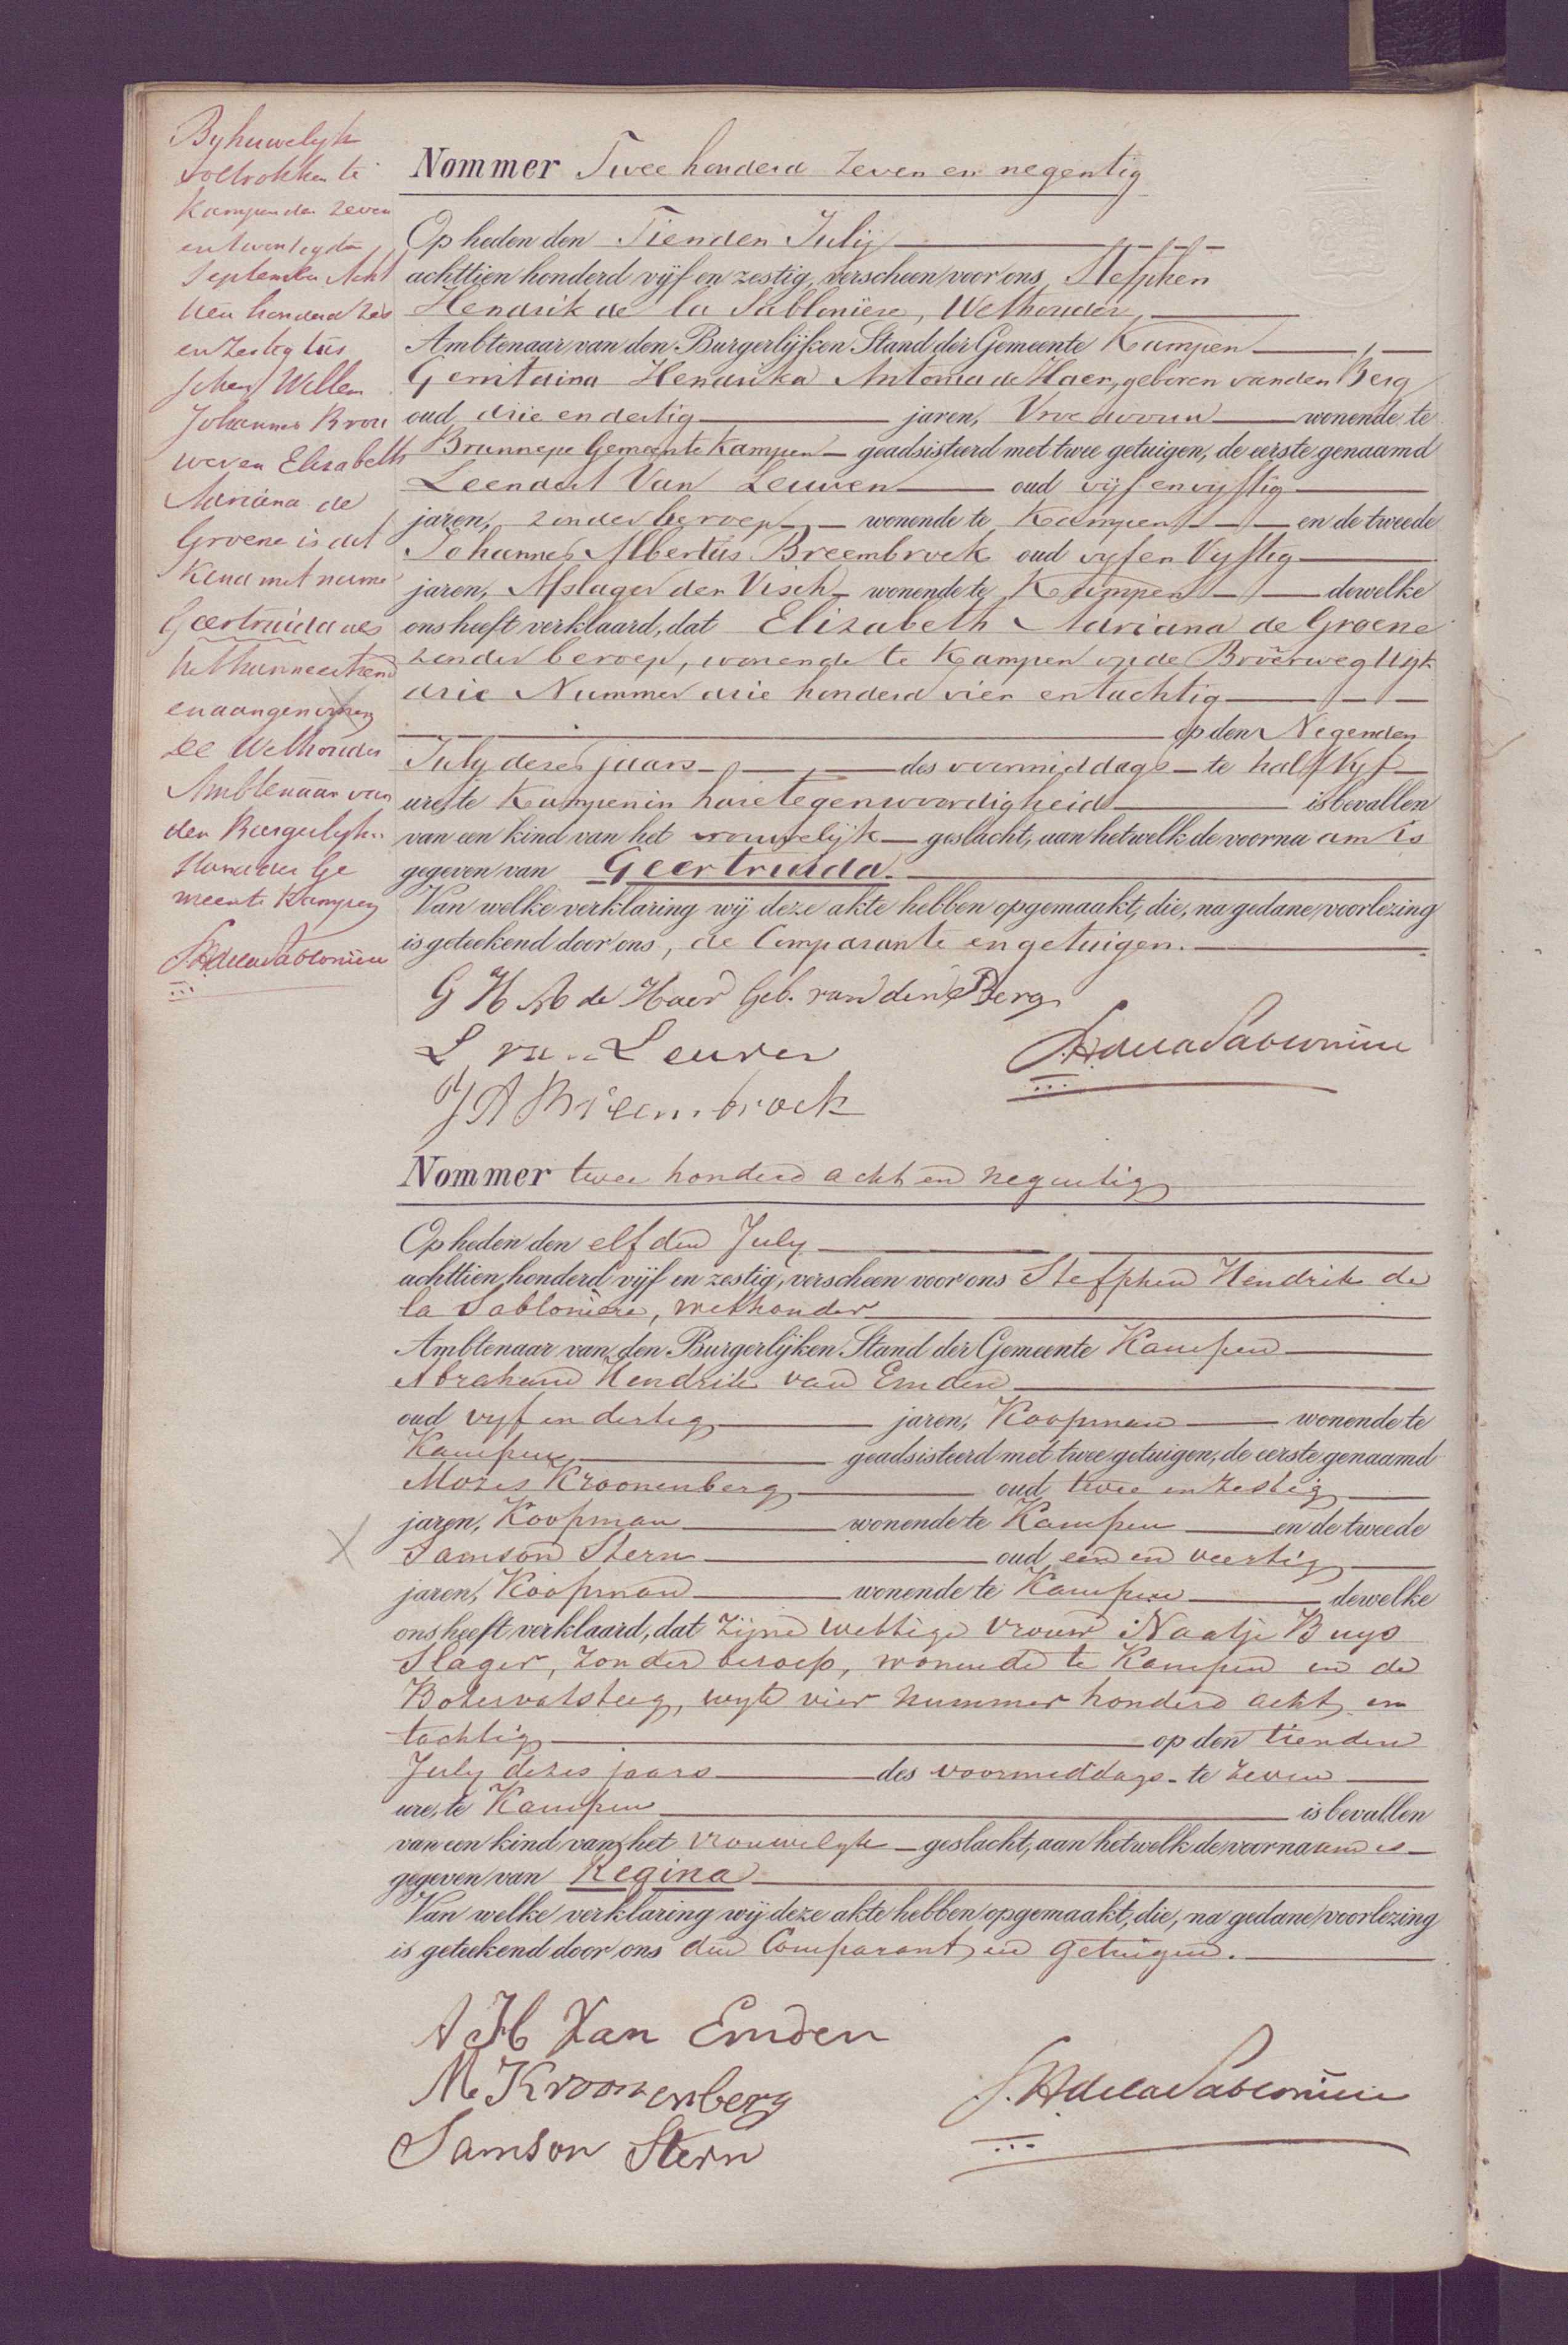 Byhuwelyk
voltrokken te
Kampen den zeven
en twintigsten
September Acht
tien honderd zes
en zestig tus
schen Willem
Johannes Brou
wer en Elisabeth
Adriana de
Groene is dit
kind met name
Geertruida als
het hunne erkend
en aangenomen
De Wethouder
Ambtenaar van
den Burgerlyken
Stand der Ge
meente Kampen
SHdelaSabloniere
Nommer Twee honderd zeven en negentig
Op heden den Tienden July
achttien honderd vijf en zestig, verscheen voor ons Stefphen
Hendrik de la Sablonière, Wethouder,
Ambtenaar van den Burgerlijken Stand der Gemeente Kampen
Gerritdina Hendrika Antonia de Haer, geboren van den Berg
oud drie en dertig jaren, Vroedvrouw wonende te
Brunnepe Gemeente Kampen geadsisteerd met twee getuigen, de eerste genaamd
Leendert Van Leuwen oud vijf en vijftig
jaren, zonder beroep wonende te Kampen en de tweede
Johannes Albertus Breembroek oud vyf en Vyftig
jaren, Afslager der Visch wonende te Kampen dewelke
ons heeft verklaard, dat Elizabeth Adriana de Groene
zonder beroep, wonende te Kampen op de Broërweg Wijk
drie Nummer drie honderd vier en tachtig
op den Negenden
July dezes jaars des voormiddags te half Vyf
ure, te Kampen in hare tegenwoordigheid is bevallen
van een kind van het vrouwelijk geslacht, aan hetwelk de voornaam is
gegeven van Geertruida
Van welke verklaring wij deze akte hebben opgemaakt, die, na gedane voorlezing
is geteekend door ons, de Comparante en getuigen.
G H A de Haer Geb. van den Berg
L van Leuwen
SHdelaSabloniere
J A Breembroek
Nommer twee honderd acht en negentig
Op heden den elfden July
achttien honderd vijf en zestig, verscheen voor ons Stefphen Hendrik de
la Sablonière, wethouder
Ambtenaar van den Burgerlijken Stand der Gemeente Kampen
Abraham Hendrik van Emden
oud vyf en dertig jaren, Koopman wonende te
Kampen geadsisteerd met twee getuigen, de eerste genaamd
Mozes Kroonenberg oud twee en zestig
jaren, Koopman wonende te Kampen en de tweede
Samson Stern oud een en veertig
jaren, Koopman wonende te Kampen dewelke
ons heeft verklaard, dat zijne wettige vrouw Naatje Buys
Slager, zonder beroep, wonende te Kampen in de
Botervatsteeg, wyk vier nummer honderd acht en
tachtig op den tienden
July dezes jaars des voormiddags te zeven
ure, te Kampen is bevallen
van een kind van het vrouwelyk geslacht, aan hetwelk de voornaam is
gegeven van Regina
Van welke verklaring wij deze akte hebben opgemaakt, die, na gedane voorlezing
is geteekend door ons den Comparant en getuigen.
A H Van Emden
M Kroonenberg
S.HdelaSabloniere
Samson Stern